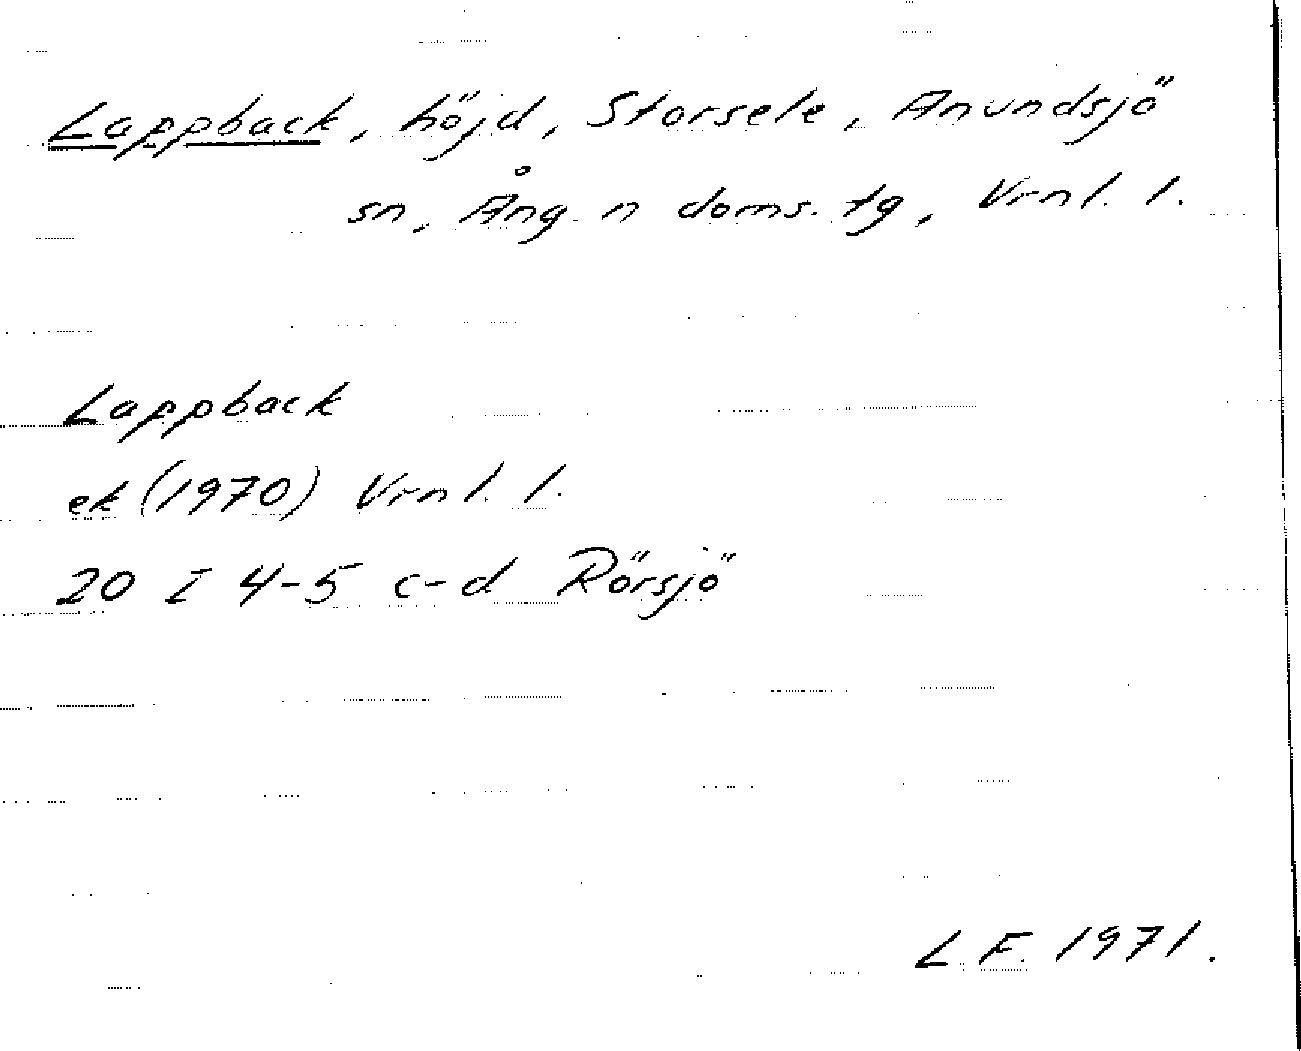 Lappback, höjd, Storsele, Anundsjö
sn, Ång. n doms. tg, Vrnl. l.
Lappback
ek (1970) Vrnl. l.
20 I 4-5 c-d Rörsjö
L.F. 1971.